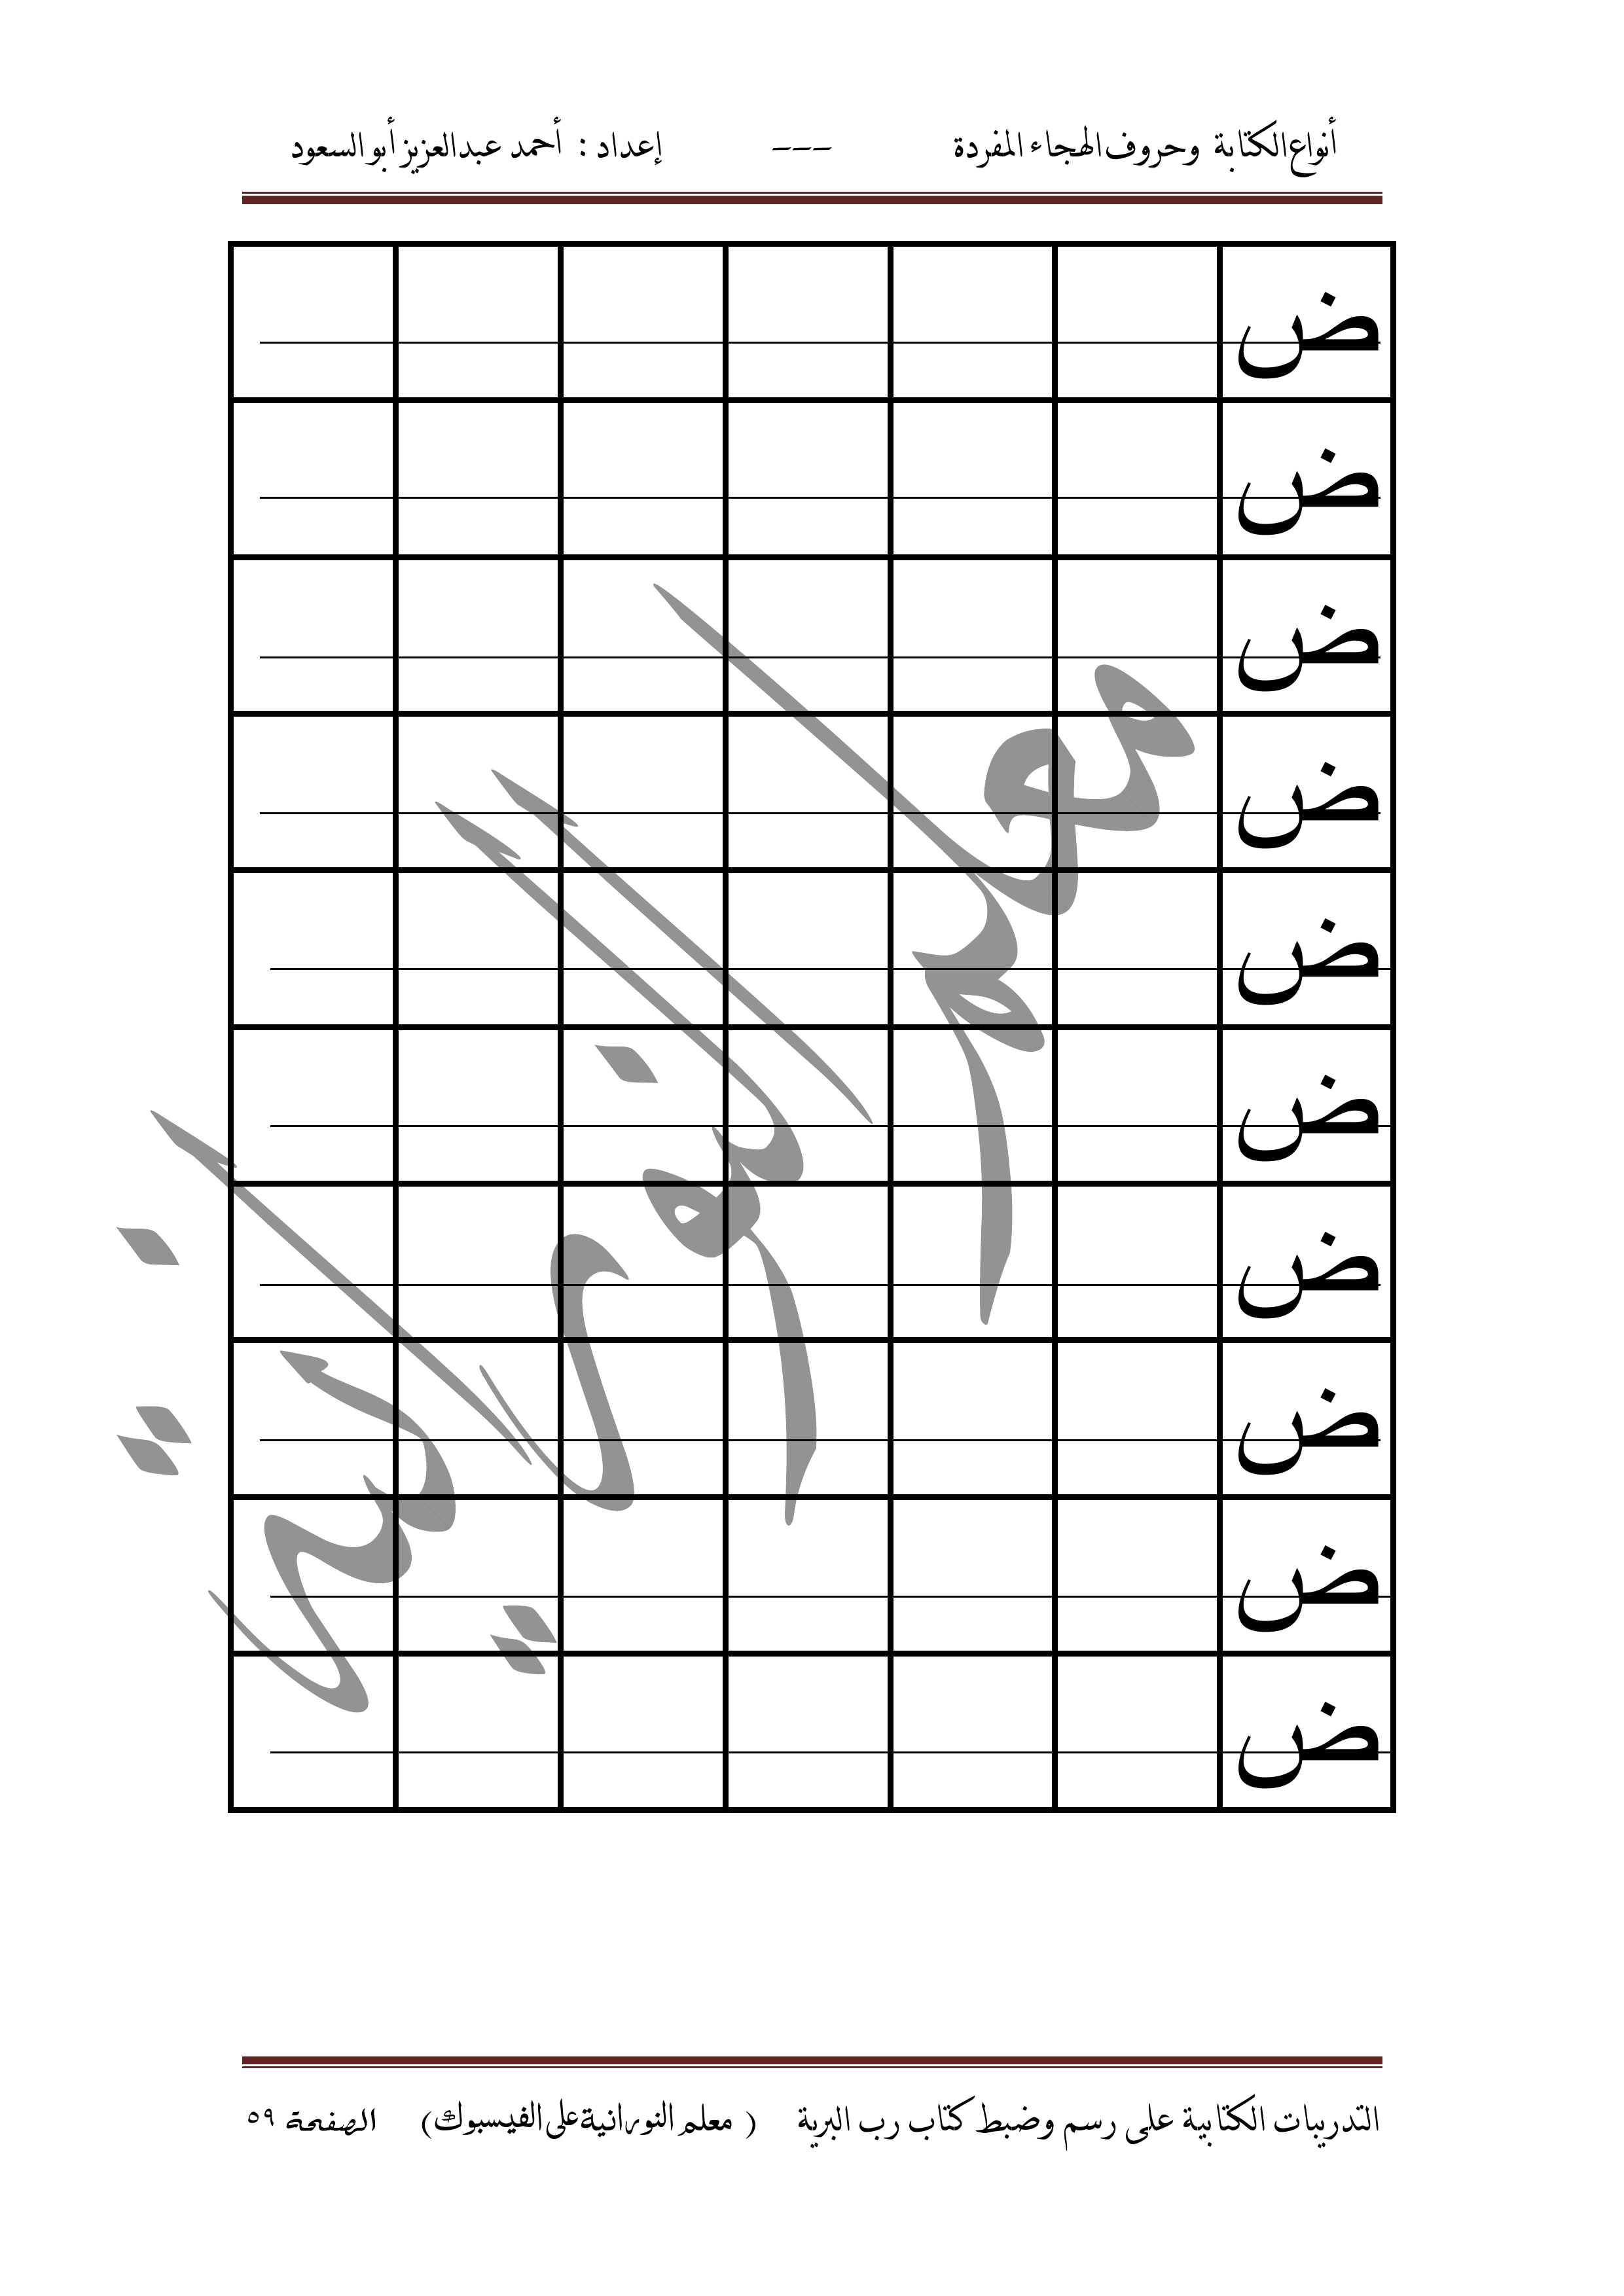 أنواع الكتابة وحروف الهجاء المفردة --- إعداد : أحمد عبدالعزيز أبو السعود
ض
ض
ض
ض
ض
ض
ض
ض
ض
ض
معلم النورانية
التدريبات الكتابية على رسم وضبط كتاب رب البرية ( معلم النورانية على الفيسبوك) الصفحة ٥٩